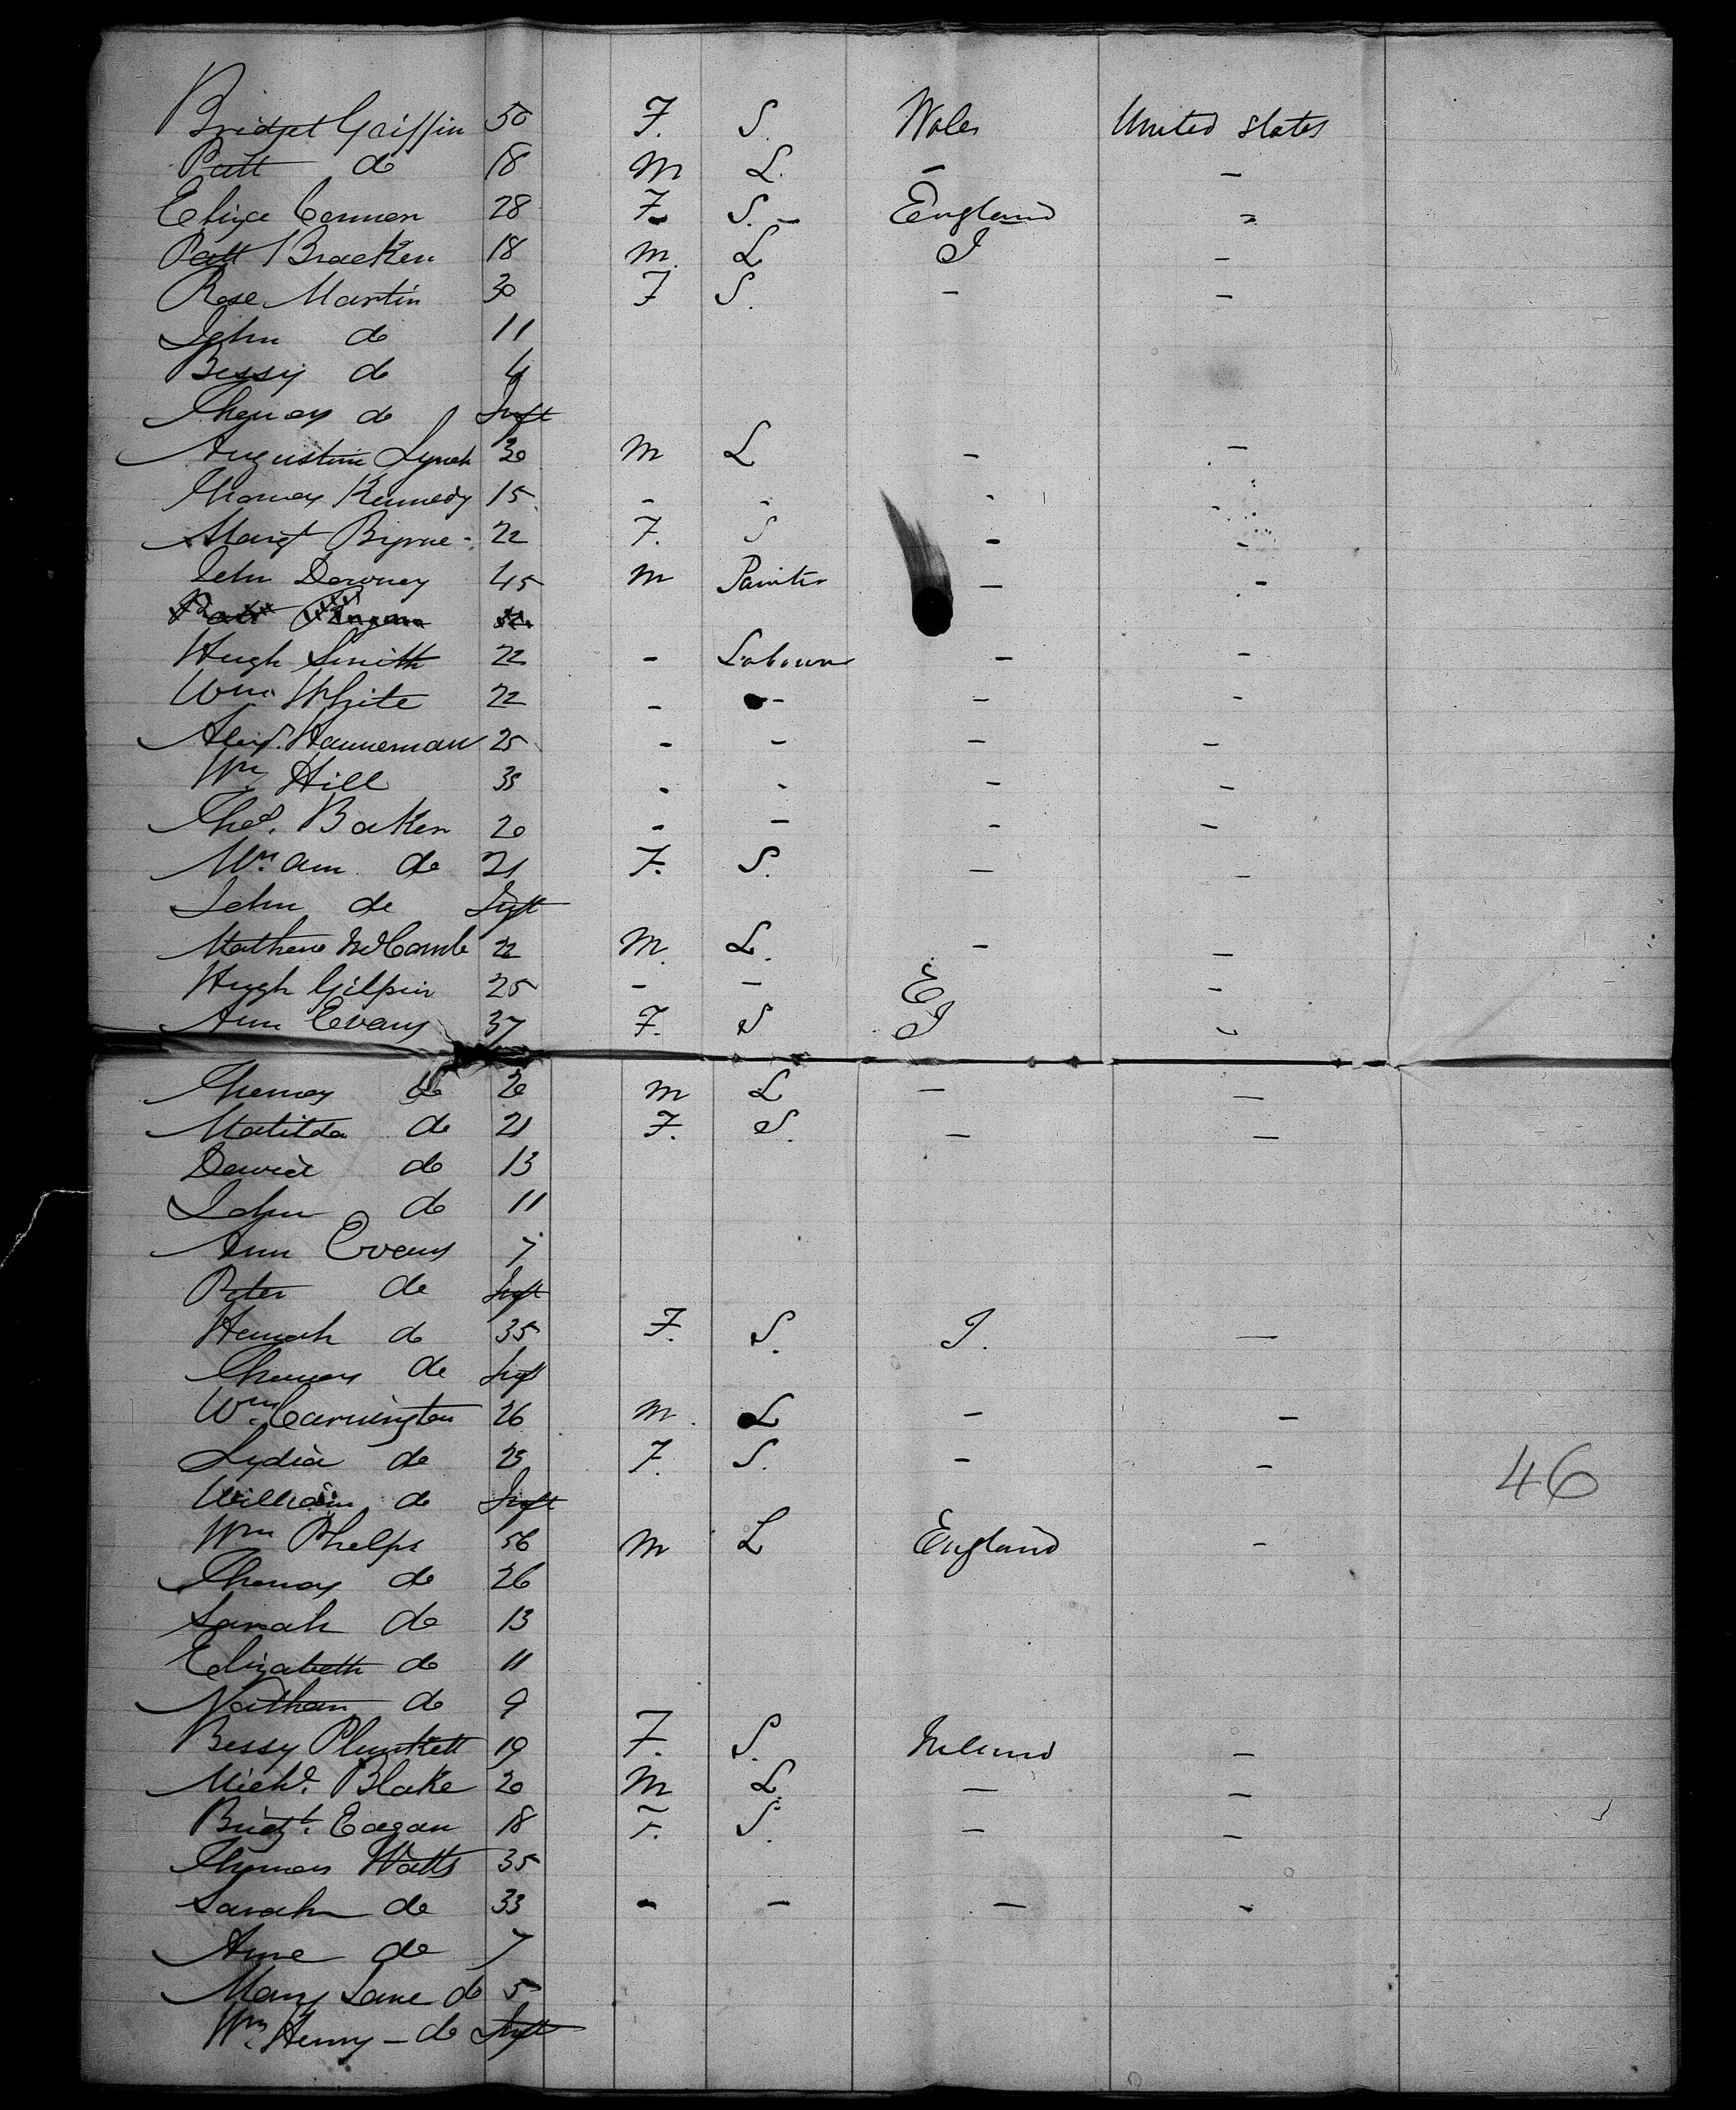 Bridget Griffin 50 F. S. Wales United States
Patt do 18 M L. - -
Eliza Connor 28 F- S. - England "
Patt Bracken 18 M. L I -
Rose Martin 30 F S. - -
John do 11
Bessy do 4
Thomas do Inft
Augustin Lynch 30 M L - -
Thomas Kennedy 15 - - - -
Margt Byrne - 22 F. S - -
John Downey 45 M Painter - -
Patt
Hugh Smith 22 - Labourer - -
Wm White 22 - - - -
Alexr. Hanneman 25 - - - -
Wm Hill 35 - - - -
Thos. Baker 20 - - - -
Mrs. Ann do 21 F. S. - -
John do Inft
Mathew McComb 22 M. L. - -
Hugh Gilpin 25 - - E -
Ann Evans 37 F. S I -
Thomas do 20 M L - -
Matilda do 21 F. S. - -
David do 13
John do 11
Ann Evans 7
Peter do Inft
Hannah do 35 F. S. I. -
Thomas do Inft
Wm. Carrington 26 M. L - -
Lydia do 25 F. S. - -
William do Inft 46
Wm Phelps 56 M L England -
Thomas do 26
Sarah do 13
Elizabeth do 11
Nathan do 9
Bessy Plunkett 19 F. S. Ireland -
Michl. Blake 20 M L. - -
Bridgt. Eagan 18 F. S. - -
Thomas Watts 35
Sarah do 33 - - - -
Anne do 7
Mary Jane do 5
Wm. Henry - do Inft